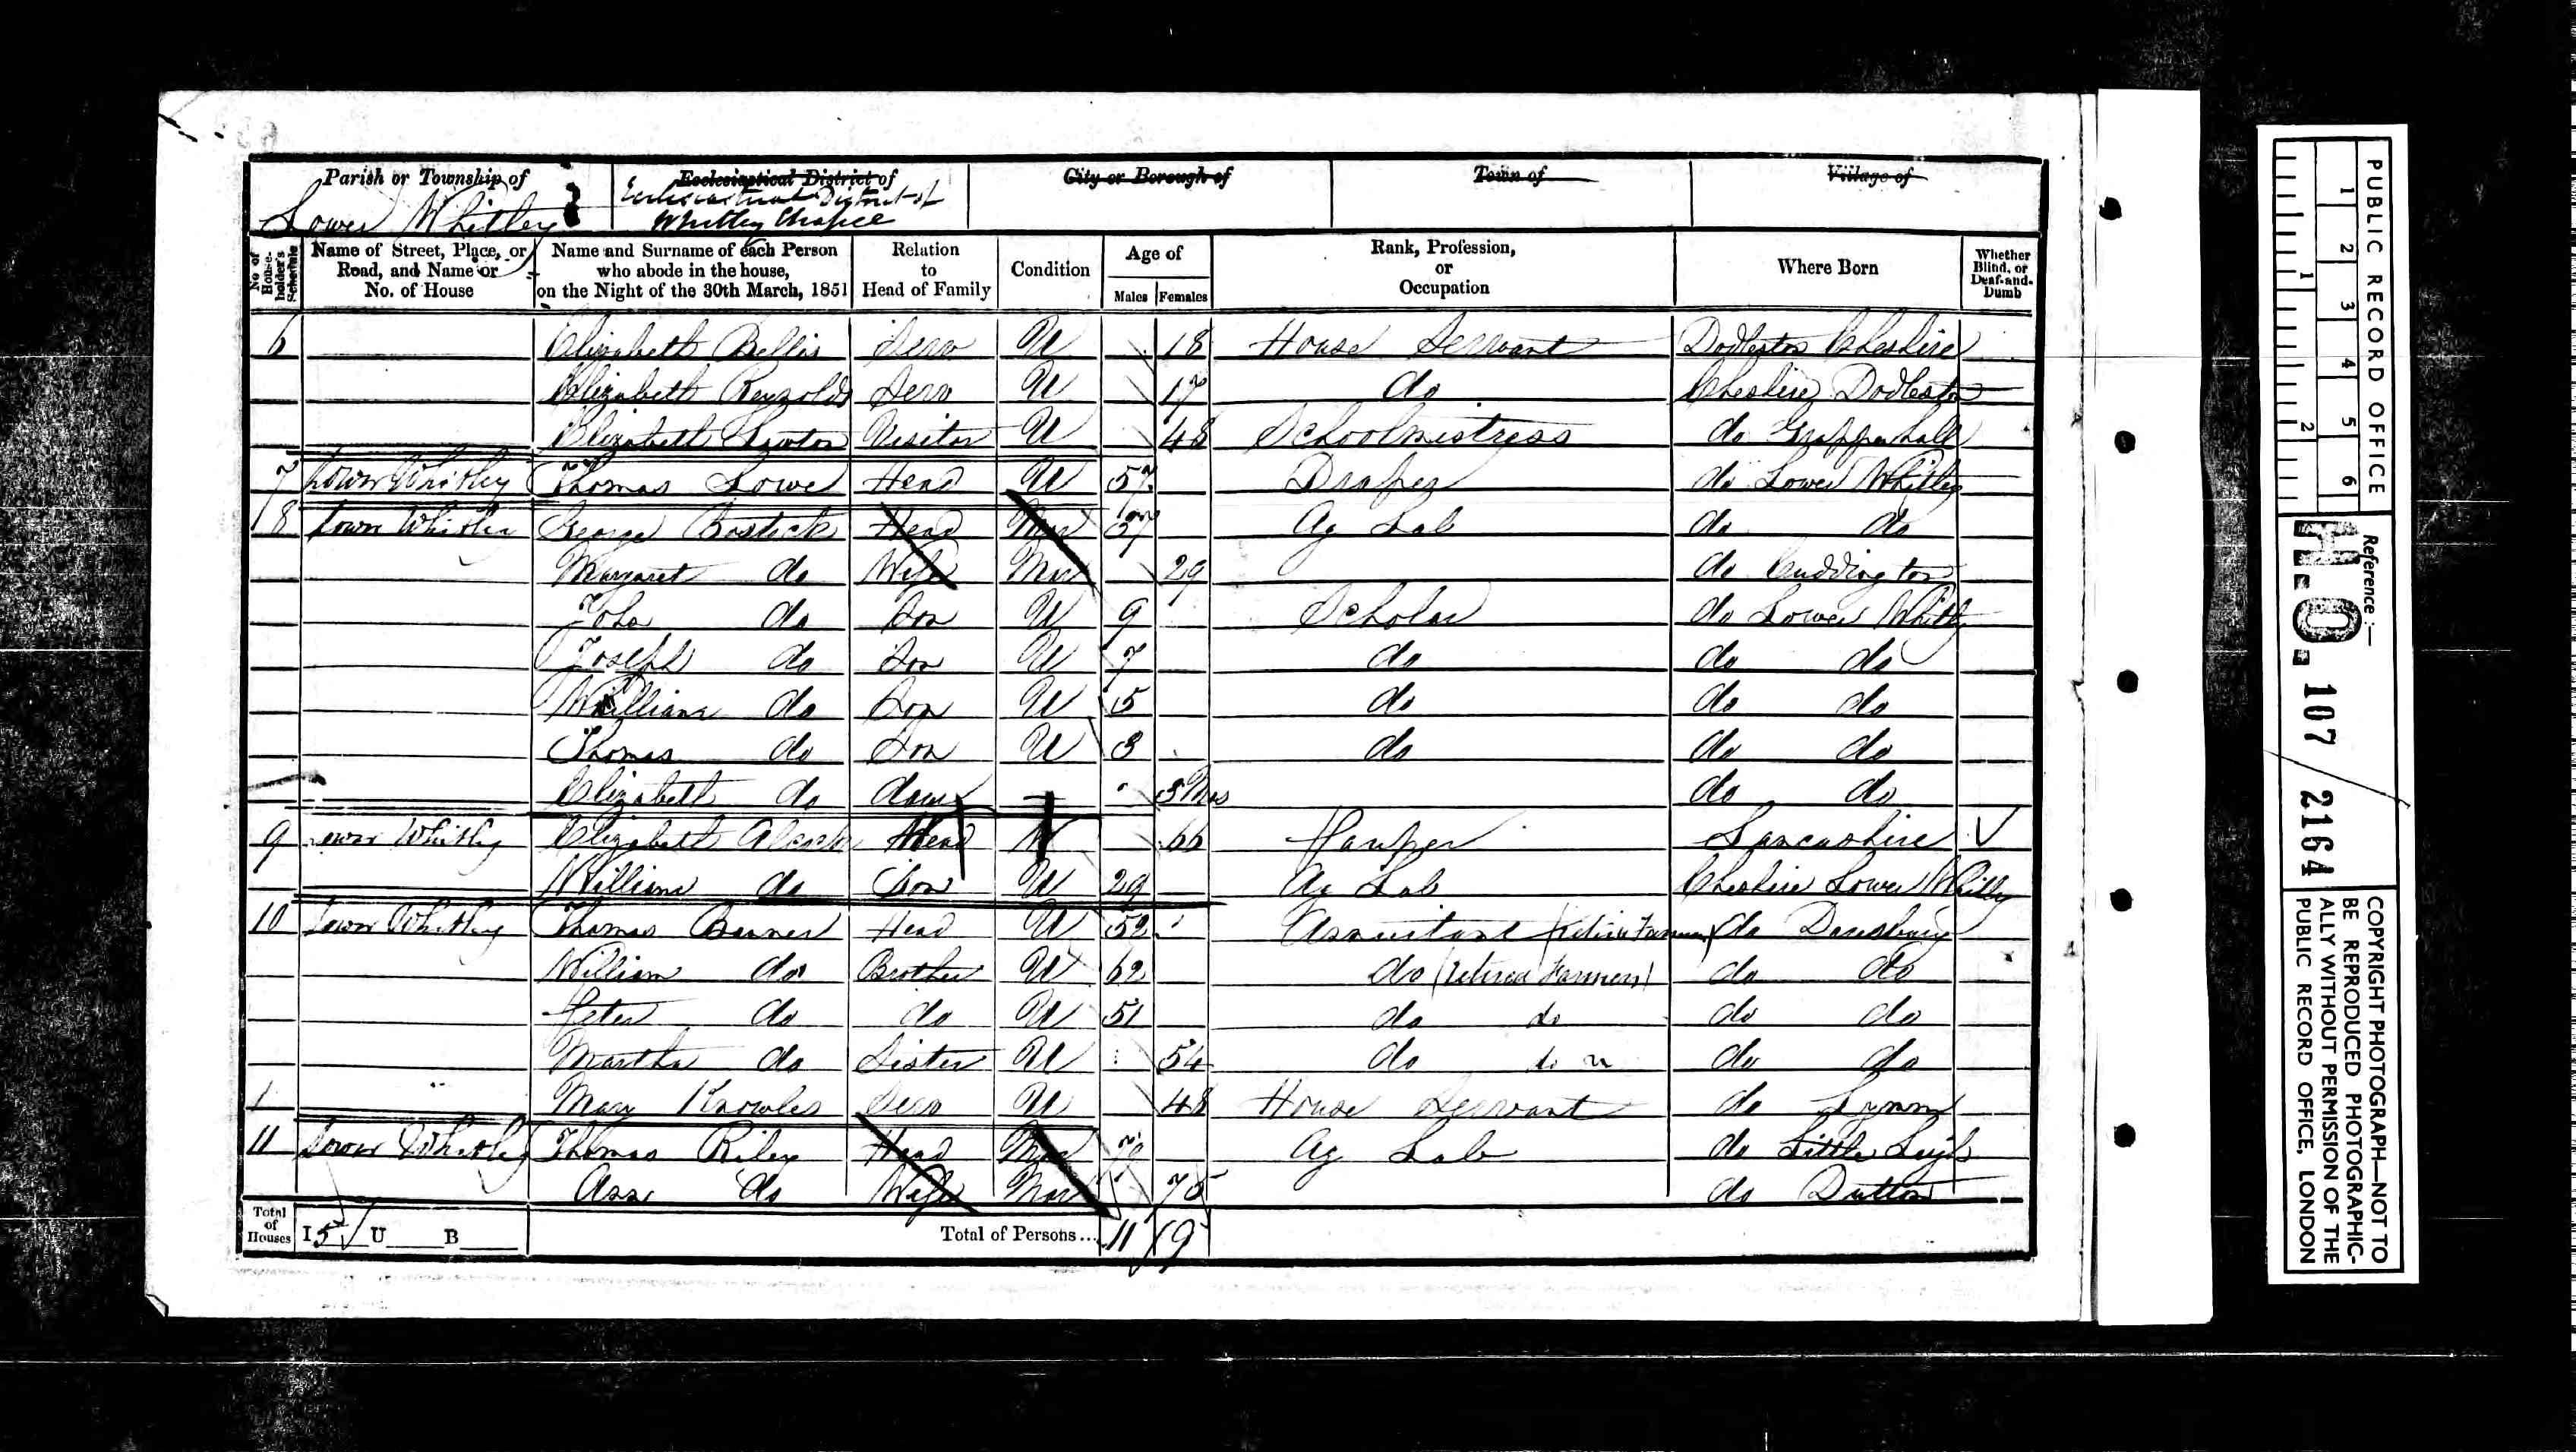 Parish or Township of
Lower Whitley
Ecclesiastical District of
Ecclesiastical District of
Whitley Chapel
City or Borough of
Town of
Village of
No. of House-holder's Schedule
Name of Street, Place, or Road, and Name or No. of House
Name and Surname of each Person who abode in the house, on the Night of the 30th March, 1851
Relation to Head of Family
Condition
Age of
Males Females
Rank, Profession, or Occupation
Where Born
Whether Blind, or Deaf-and-Dumb
6 Elizabeth Bellis Serv U 18 House Servant Dodleston Cheshire
Elizabeth Reynolds Serv U 17 do Cheshire Dodleston
Elizabeth Lawton Visitor U 48 Schoolmistress do Grappenhall
7 Lower Whitley Thomas Lowe Head U 57 Draper do Lower Whitley
8 Lower Whitley George Bostock Head Mar 37 Ag Lab do do
Margaret do Wife Mar 29 do Cuddington
John do Son U 9 Scholar do Lower Whitly
Joseph do Son U 7 do do do
William do Son U 5 do do do
Thomas do Son U 3 do do do
Elizabeth do daur 3 Mos do do
9 Lower Whitley Elizabeth Head W 66 Pauper Lancashire
William do Son U 29 Ag Lab Cheshire Lower Whitly
10 Lower Whitley Thomas Head U 52 Annuitant (Retired Farmer) do Daresbury
William do Brother U 62 do (retired Farmers) do do
Peter do do U 51 do do do do
Martha do Sister U 54 do do do do
Mary Knowles Serv U 48 House Servant do Lymm
11 Lower Whitley Thomas Riley Head Mar Ag Lab do Little Leigh
Ann do Wife Mar 75 do Dutton
Total of Houses I 5 U B
Total of Persons... 11 9
PUBLIC RECORD OFFICE
1 2 3 4 5 6
1 2
Reference :—
H.O. 107 2164
COPYRIGHT PHOTOGRAPH—NOT TO BE REPRODUCED PHOTOGRAPHIC-ALLY WITHOUT PERMISSION OF THE PUBLIC RECORD OFFICE, LONDON